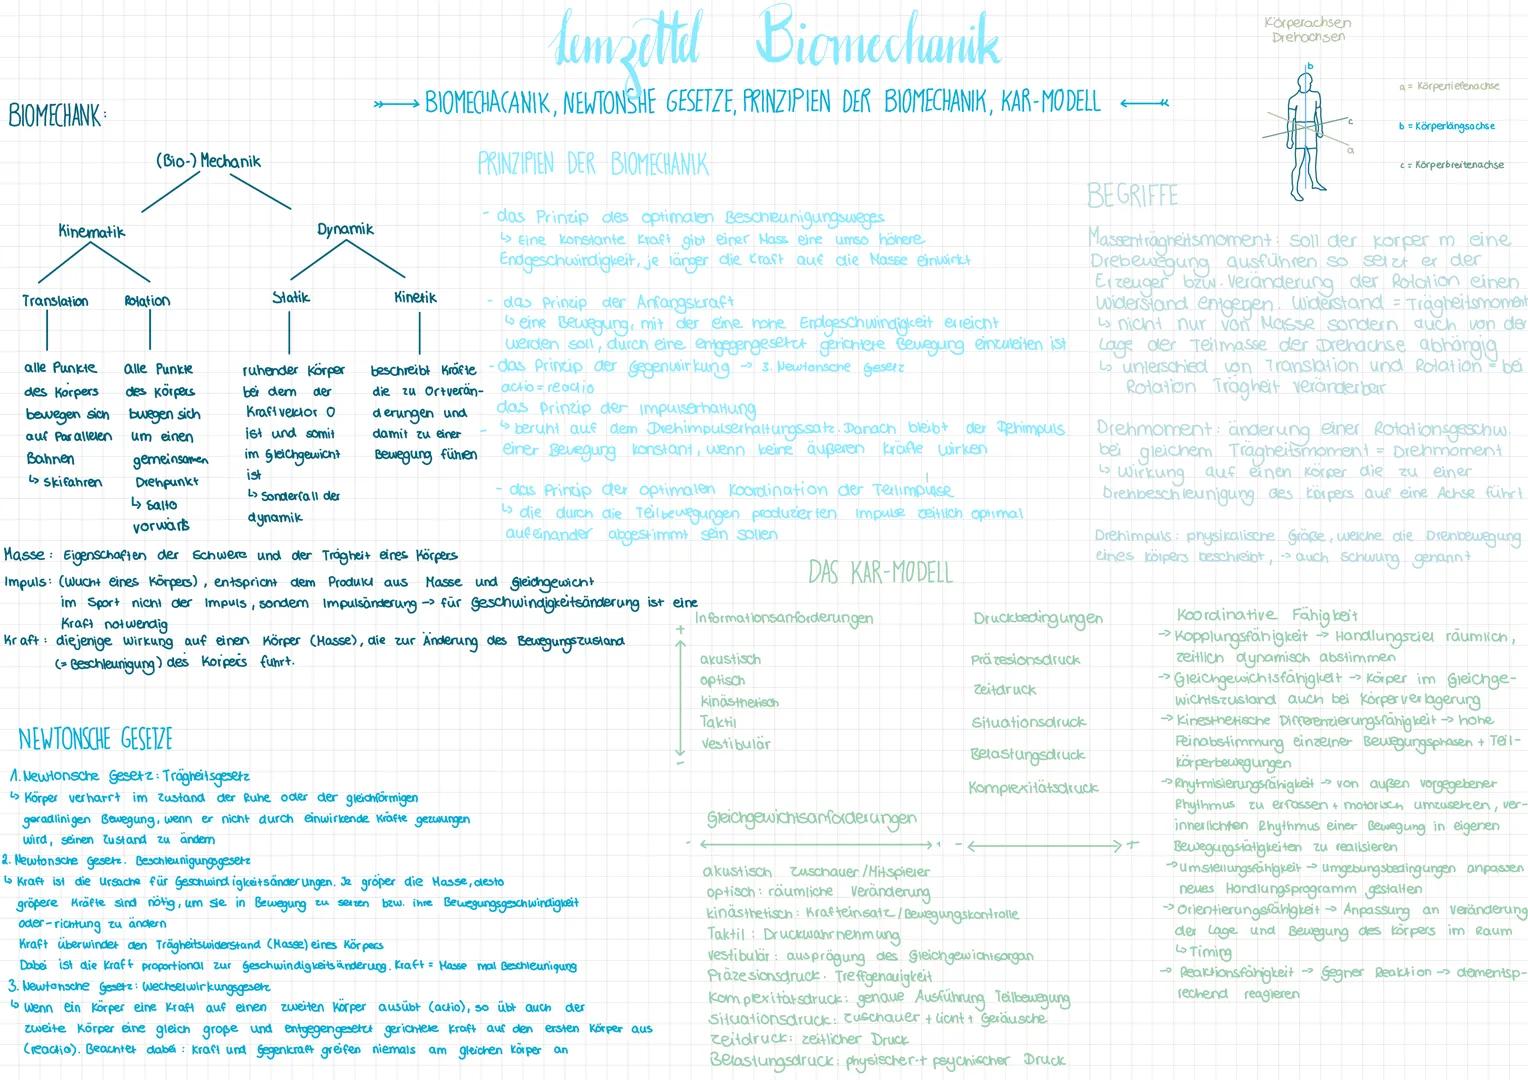 Lernzettel Biomechanik
BIOMECHACANIK, NEWTONSHE GESETZE, PRINZIPIEN DER BIOMECHANIK, KAR-MODELL
Körperachsen
Drehachsen
b
c
a
a = Körpertiefenachse
b = Körperlängsachse
c = Körperbreitenachse
BIOMECHANK:
(Bio-) Mechanik
Kinematik
Dynamik
Translation
Rotation
Statik
Kinetik
alle Punkte
des Körpers
bewegen sich
auf Parallelen
Bahnen
↳ Skifahren
alle Punkte
des Körpers
bwegen sich
um einen
gemeinsamen
Drehpunkt
↳ Salto
vorwärts
ruhender Körper
bei dem der
Kraftvektor 0
ist und somit
im Gleichgewicht
ist
↳ Sonderfall der
dynamik
beschreibt Kräfte
die zu Ortverän-
derungen und
damit zu einer
Bewegung führen
Masse: Eigenschaften der Schwere und der Trägheit eines Körpers
Impuls: (Wucht eines Körpers), entspricht dem Produkt aus Masse und Gleichgewicht
im Sport nicht der Impuls, sondern Impulsänderung → für Geschwindigkeitsänderung ist eine
Kraft notwendig
Kraft: diejenige Wirkung auf einen Körper (Masse), die zur Änderung des Bewegungszustand
(= Beschleunigung) des Körpers führt.
NEWTONSCHE GESETZE
1. Newtonsche Gesetz: Trägheitsgesetz
↳ Körper verharrt im Zustand der Ruhe oder der gleichförmigen
geradlinigen Bewegung, wenn er nicht durch einwirkende Kräfte gezwungen
wird, seinen Zustand zu ändern
2. Newtonsche Gesetz. Beschleunigungsgesetz
↳ Kraft ist die Ursache für Geschwindigkeitsänderungen. Je größer die Masse, desto
größere Kräfte sind nötig, um sie in Bewegung zu setzen bzw. ihre Bewegungsgeschwindigkeit
oder -richtung zu ändern
Kraft überwindet den Trägheitswiderstand (Masse) eines Körpers
Dabei ist die Kraft proportional zur Geschwindigkeitsänderung. Kraft = Masse mal Beschleunigung
3. Newtonsche Gesetz: Wechselwirkungsgesetz
↳ Wenn ein Körper eine Kraft auf einen zweiten Körper ausübt (actio), so übt auch der
zweite Körper eine gleich große und entgegengesetzt gerichtete Kraft auf den ersten Körper aus
(reactio). Beachtet dabei: Kraft und Gegenkraft greifen niemals am gleichen Körper an
PRINZIPIEN DER BIOMECHANIK
- das Prinzip des optimalen Beschleunigungsweges
↳ Eine konstante Kraft gibt einer Mass eine umso höhere
Endgeschwindigkeit, je länger die Kraft auf die Masse einwirkt
- das Prinzip der Anfangskraft
↳ eine Bewegung, mit der eine hohe Endgeschwindigkeit erreicht
werden soll, durch eine entgegengesetzt gerichtete Bewegung einzuleiten ist
- das Prinzip der Gegenwirkung → 3. Newtonsche Gesetz
actio = reactio
das Prinzip der Impulserhaltung
- ↳ beruht auf dem Drehimpulserhaltungssatz. Danach bleibt der Dehimpuls
einer Bewegung konstant, wenn keine äußeren Kräfte wirken
- das Prinzip der optimalen Koordination der Teilimpulse
↳ die durch die Teilbewegungen produzierten Impulse zeitlich optimal
aufeinander abgestimmt sein sollen
BEGRIFFE
Massenträgheitsmoment: soll der Körper m eine
Drebewegung ausführen so setzt er der
Erzeuger bzw. Veränderung der Rotation einen
Widerstand entgegen. Widerstand = Trägheitsmoment
↳ nicht nur von Masse sondern auch von der
Lage der Teilmasse der Drehachse abhängig
↳ unterschied von Translation und Rotation = bei
Rotation Trägheit veränderbar
Drehmoment: änderung einer Rotationsgeschw.
bei gleichem Trägheitsmoment = Drehmoment
↳ Wirkung auf einen Körper die zu einer
Drehbeschleunigung des Körpers auf eine Achse führt
Drehimpuls: physikalische Größe, welche die Drehbewegung
eines Körpers beschreibt, → auch Schwung genannt
DAS KAR-MODELL
Informationsanforderungen
+
akustisch
optisch
kinästhetisch
Taktil
vestibulär
-
Druckbedingungen
Präzesionsdruck
Zeitdruck
Situationsdruck
Belastungsdruck
Komplexitätsdruck
Gleichgewichtsanforderungen
- +
- +
akustisch Zuschauer/Mitspieler
optisch: räumliche Veränderung
kinästhetisch: Krafteinsatz/Bewegungskontrolle
Taktil: Druckwahrnehmung
Vestibulär: ausprägung des Gleichgewichtsorgan
Präzesionsdruck. Treffgenauigkeit
Komplexitätsdruck: genaue Ausführung Teilbewegung
Situationsdruck: Zuschauer + Licht + Geräusche
Zeitdruck: zeitlicher Druck
Belastungsdruck: physischer + psychischer Druck
Koordinative Fähigkeit
→ Kopplungsfähigkeit → Handlungsziel räumlich,
zeitlich dynamisch abstimmen
→ Gleichgewichtsfähigkeit → Körper im Gleichge-
wichtszustand auch bei Körperverlagerung
→ Kinesthetische Differenzierungsfähigkeit → hohe
Feinabstimmung einzelner Bewegungsphasen + Teil-
körperbewegungen
→ Rhytmisierungsfähigkeit → von außen vorgegebener
Rhythmus zu erfassen + motorisch umzusetzen, ver-
innerlichten Rhythmus einer Bewegung in eigenen
Bewegungstätigkeiten zu realisieren
→ Umstellungsfähigkeit → umgebungsbedingungen anpassen
neues Handlungsprogramm gestalten
→ Orientierungsfähigkeit → Anpassung an Veränderung
der Lage und Bewegung des Körpers im Raum
↳ Timing
→ Reaktionsfähigkeit → Gegner Reaktion → dementsp-
rechend reagieren